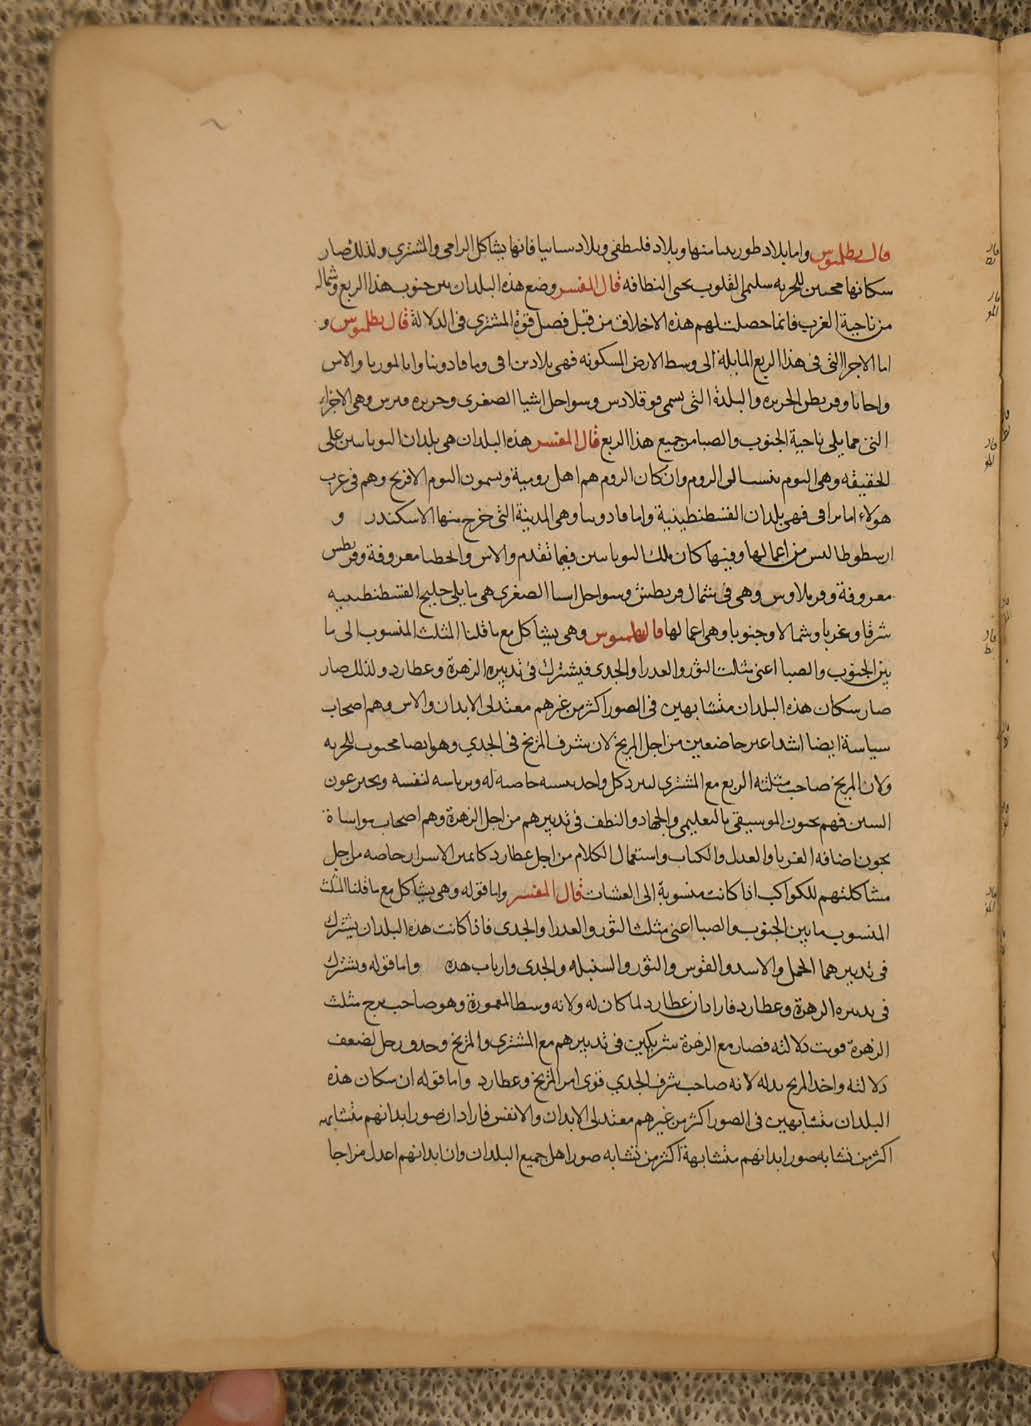 قال بطلميوس واما بلاد طورينيا منها وبلاد فلسطفى وبلاد سبانيا فانها يشاكل الرامى والمشترى ولذلك صار
سكانها محبين للحريه سليمى القلوب يحبى النظافه قال المفسر وضع هذه البلدان بين جنوب هذا الربع وشماله
من ناجية الغرب فانما حصلت لهم هذه الاخلاق من قبل فصل قوة المشترى فى الدلالة قال بطلميوس و
اما الاجزا التى فى هذا الربع المايلة الى وسط الارض المسكونه فهى بلاد وماقادونيا والاس
واحايا وقريطس الجزيره والبلدة التى يسمى قوقلادس وسواحل اشيا الصغرى وجزيره قبرس وهى الاجزاء
التى مما يلى ناحية الجنوب والصبا من جميع هذا الربع قال المفسر هذه البلدان هى بلدان اليونانيين على
الحقيقه وهى اليوم تنسب الى الروم وان كان الروم هم اهل رومية ويسمون اليوم الافرنج وهم فى غرب
هولاء اما براقى فهى بلدان القسطنطينية واما قادونيا وهى المدينة التى خرج منها الاسكندر و
ارسطوطاليس من اعمالها وفيها كان ملك اليونانيين فيما تقدم والاس والحطبا معروفة وقريطس
معروفة وقوقلاوس وهى فى شمال قريطش وسواحل اسيا الصغرى هى ما يلى خليج القسطنطينيه
شرقا وغربا وشمالا وجنوبا وهى اعمالها قال بطلميوس وهى يشاكل مع ما قلنا المثلث المنسوب الى ما
بين الجنوب والصبا اعنى مثلث الثور والعذرا والجدى فيشترك فى تدبيره الزهرة وعطارد ولذلك صار
صار سكان هذه البلدان متشابهين فى الصور اكثر من غيرهم معتدلى الابدان والاس وهم اصحاب
سياسة ايضا اشدا غير خاضعين من اجل المريخ لان شرف المريخ فى الجدى وهو ايضا محبوب للحريه
ولان المريخ صاحب مثلثه الربع مع المشترى كل واحد بنفسه خاصه له وبرياسه لنفسه ويخترعون
السنن فهم يحبون الموسيقى بالتعليمى والجهاد والنظف فى تدبيرهم من اجل الزهرة وهم اصحاب مواساة
يحبون اضافه الغربا والعدل والكتاب واستعمال الكلام من اجل عطارد كاتمين الاسرار خاصه من اجل
مشاكلتهم للكواكب اذا كانت منسوبة الى العشيات قال المفسر واما قوله وهى يشاكل مع ما قلنا المثلث
المنسوب ما بين الجنوب والصبا اعنى مثلث الثور والعذرا والجدى فاذا كانت هذه البلدان يشترك
فى تدبيرهما الحمل والاسد والقوس والثور والسنبله والجدى وارباب هذه واما قوله ويشترك
فى تدبيره الزهرة وعطارد فارادان عطارد لما كان له ولانه وسط المعمورة وهو صاحب برج مثلث
الزهرة قويت دلالته فصار مع الزهرة شريكين فى تدبيرهم مع المشترى والمريخ وحدو زحل لضعف
دلالته واخذ المريخ بدله لانه صاحب شرف الجدي قوى امر المريخ وعطارد واما قوله ان سكان هذه
البلدان متشابهين فى الصور اكثر من غيرهم معتدلى الابدان والانفس فارادان صور ابدانهم متشابهه
اكثر من تشابه صور ابدانهم متشابهة اكثر من تشابه صور اهل جميع البلدان وان ابدانهم اعدل مزاجا